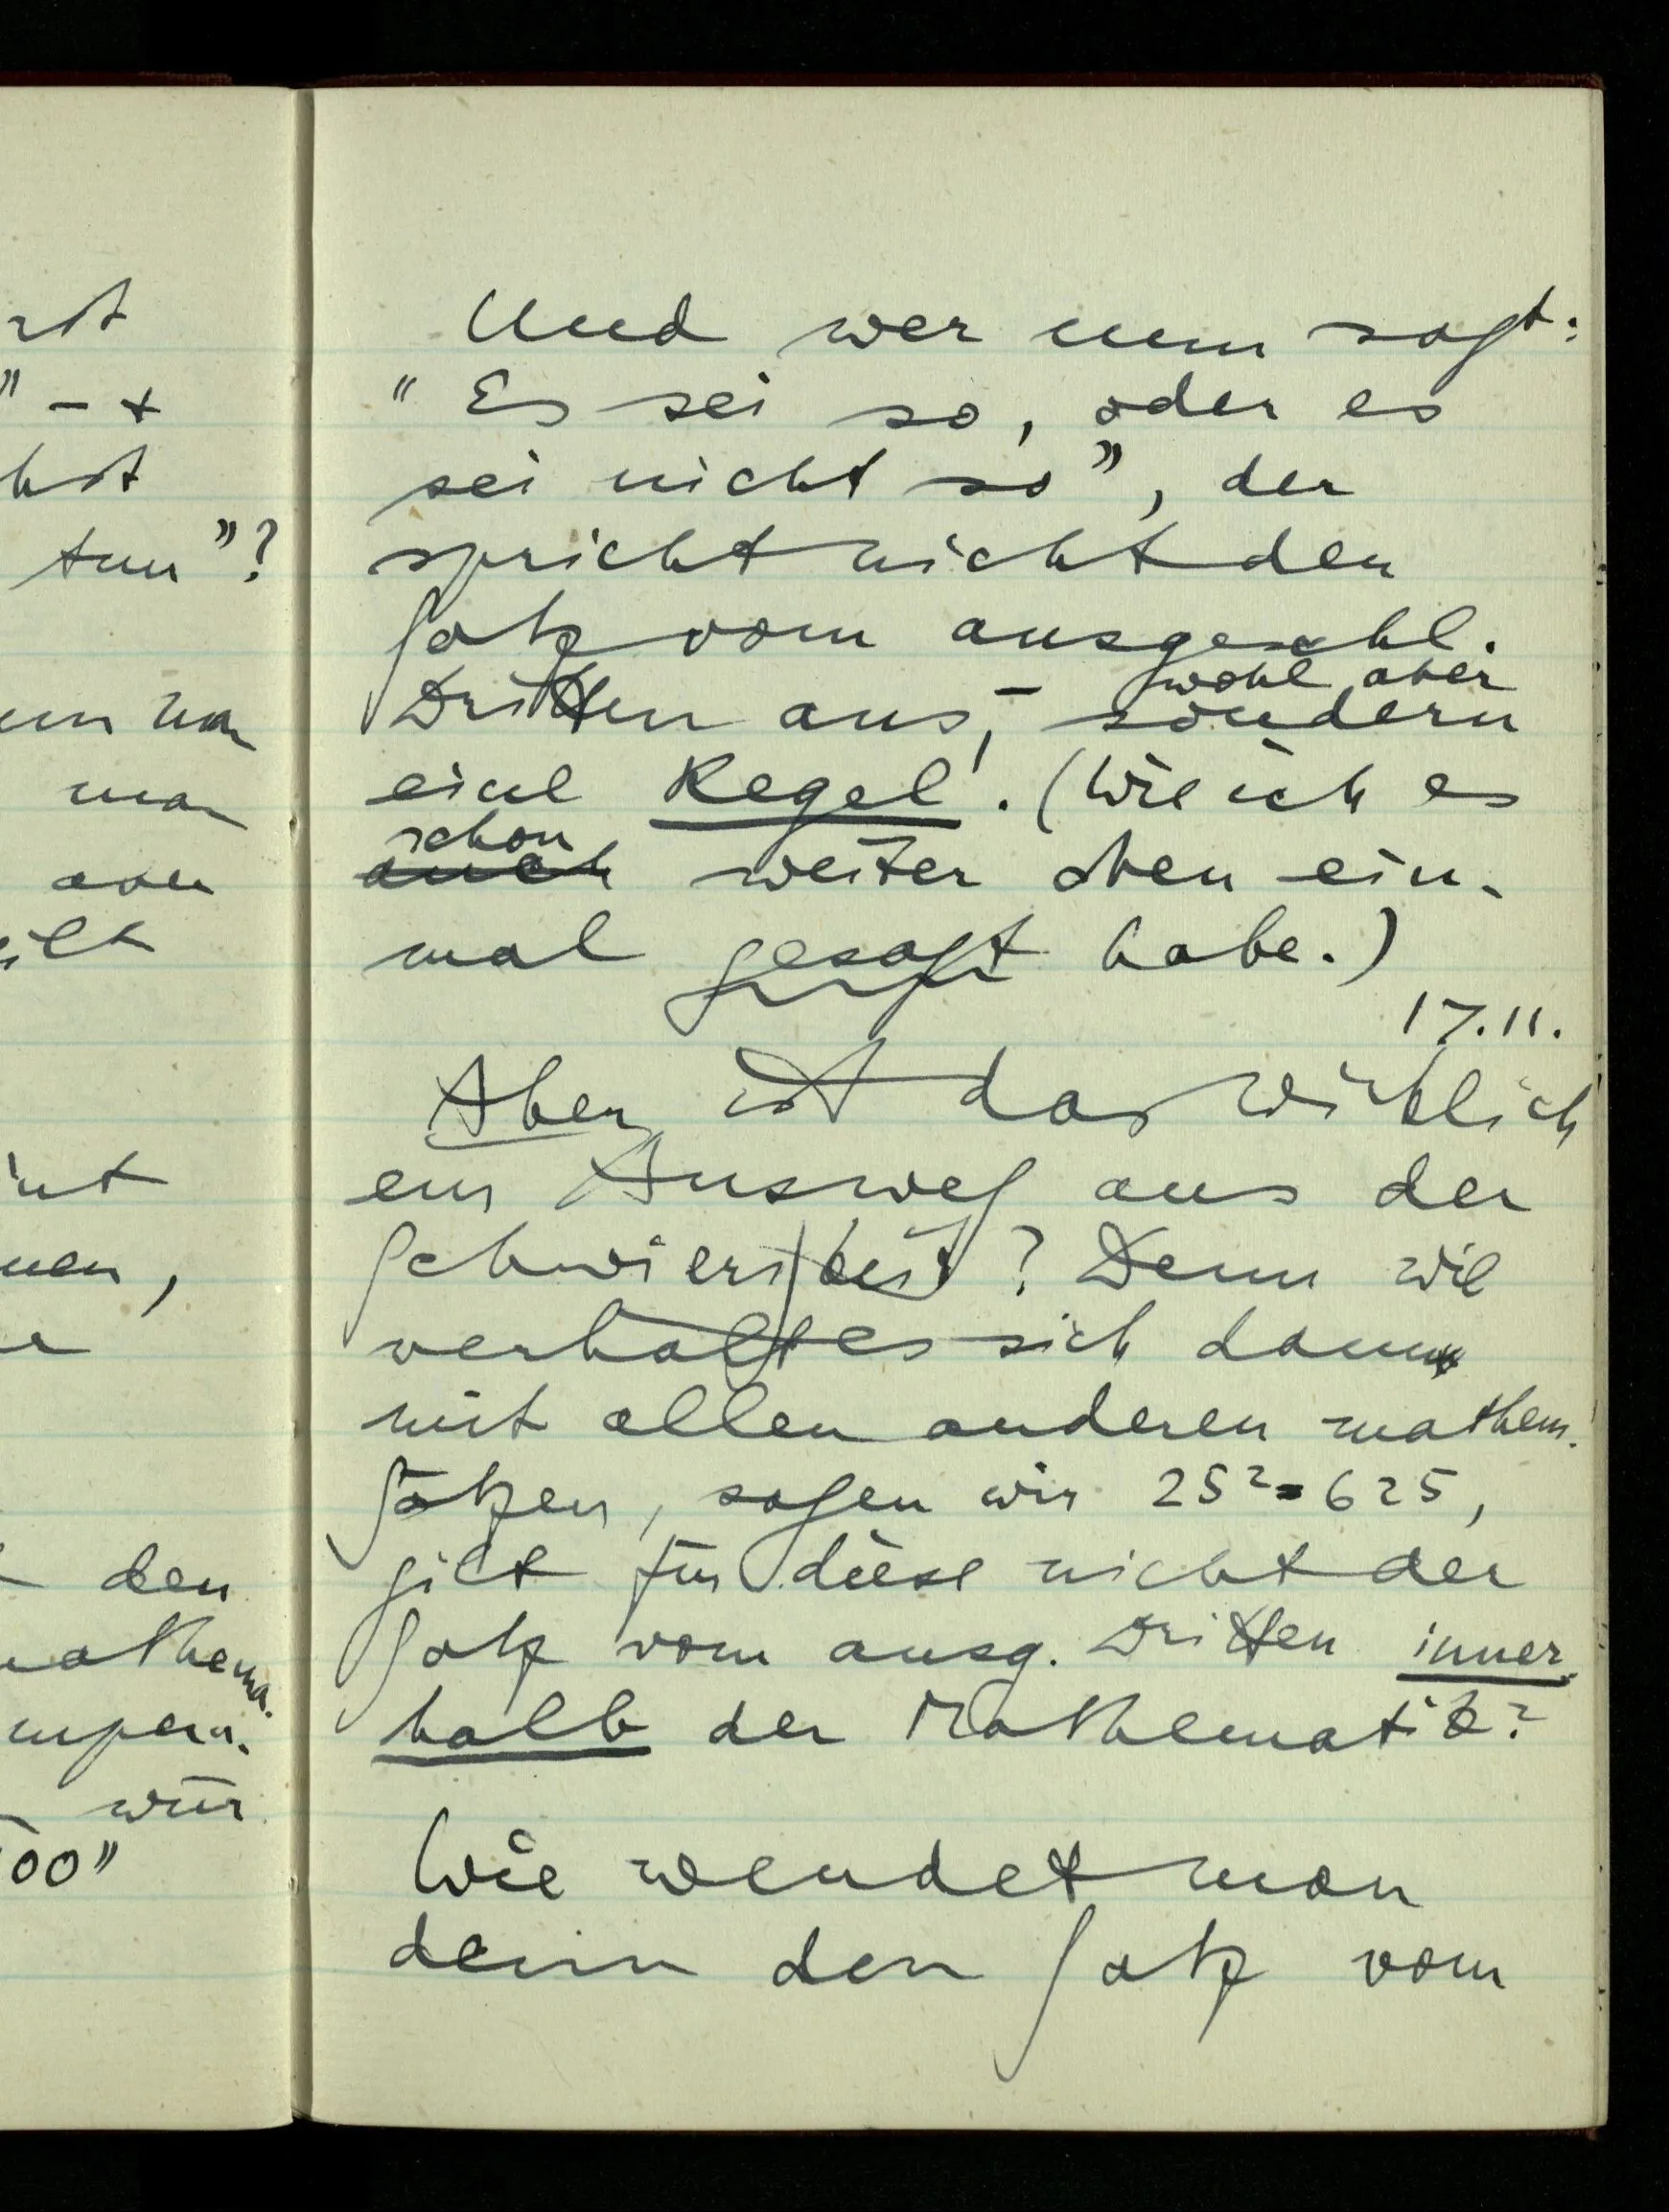 rst
" – x
hst
tun"?
man
aber
ilt
int
nen,
den
mathema.
wür
00"
Und wer nun sagt:
" Es sei so, oder es
sei nicht so", der
spricht nicht den
Satz vom ausgeschl.
wohl aber
Dritten aus, – sondern
eine Regel. (Wie ich es
schon
auch weiter oben ein-
mal gesagt habe.)
17.11.
Aber ist das wirklich
ein Ausweg aus der
Schwierigkeit? Denn wie
verhält es sich dann
mit allen anderen mathem.
Sätzen, sagen wir 25²=625,
gilt für diese nicht der
Satz vom ausg. Dritten inner-
halb der Mathematik?
Wie wendet man
denn den Satz vom